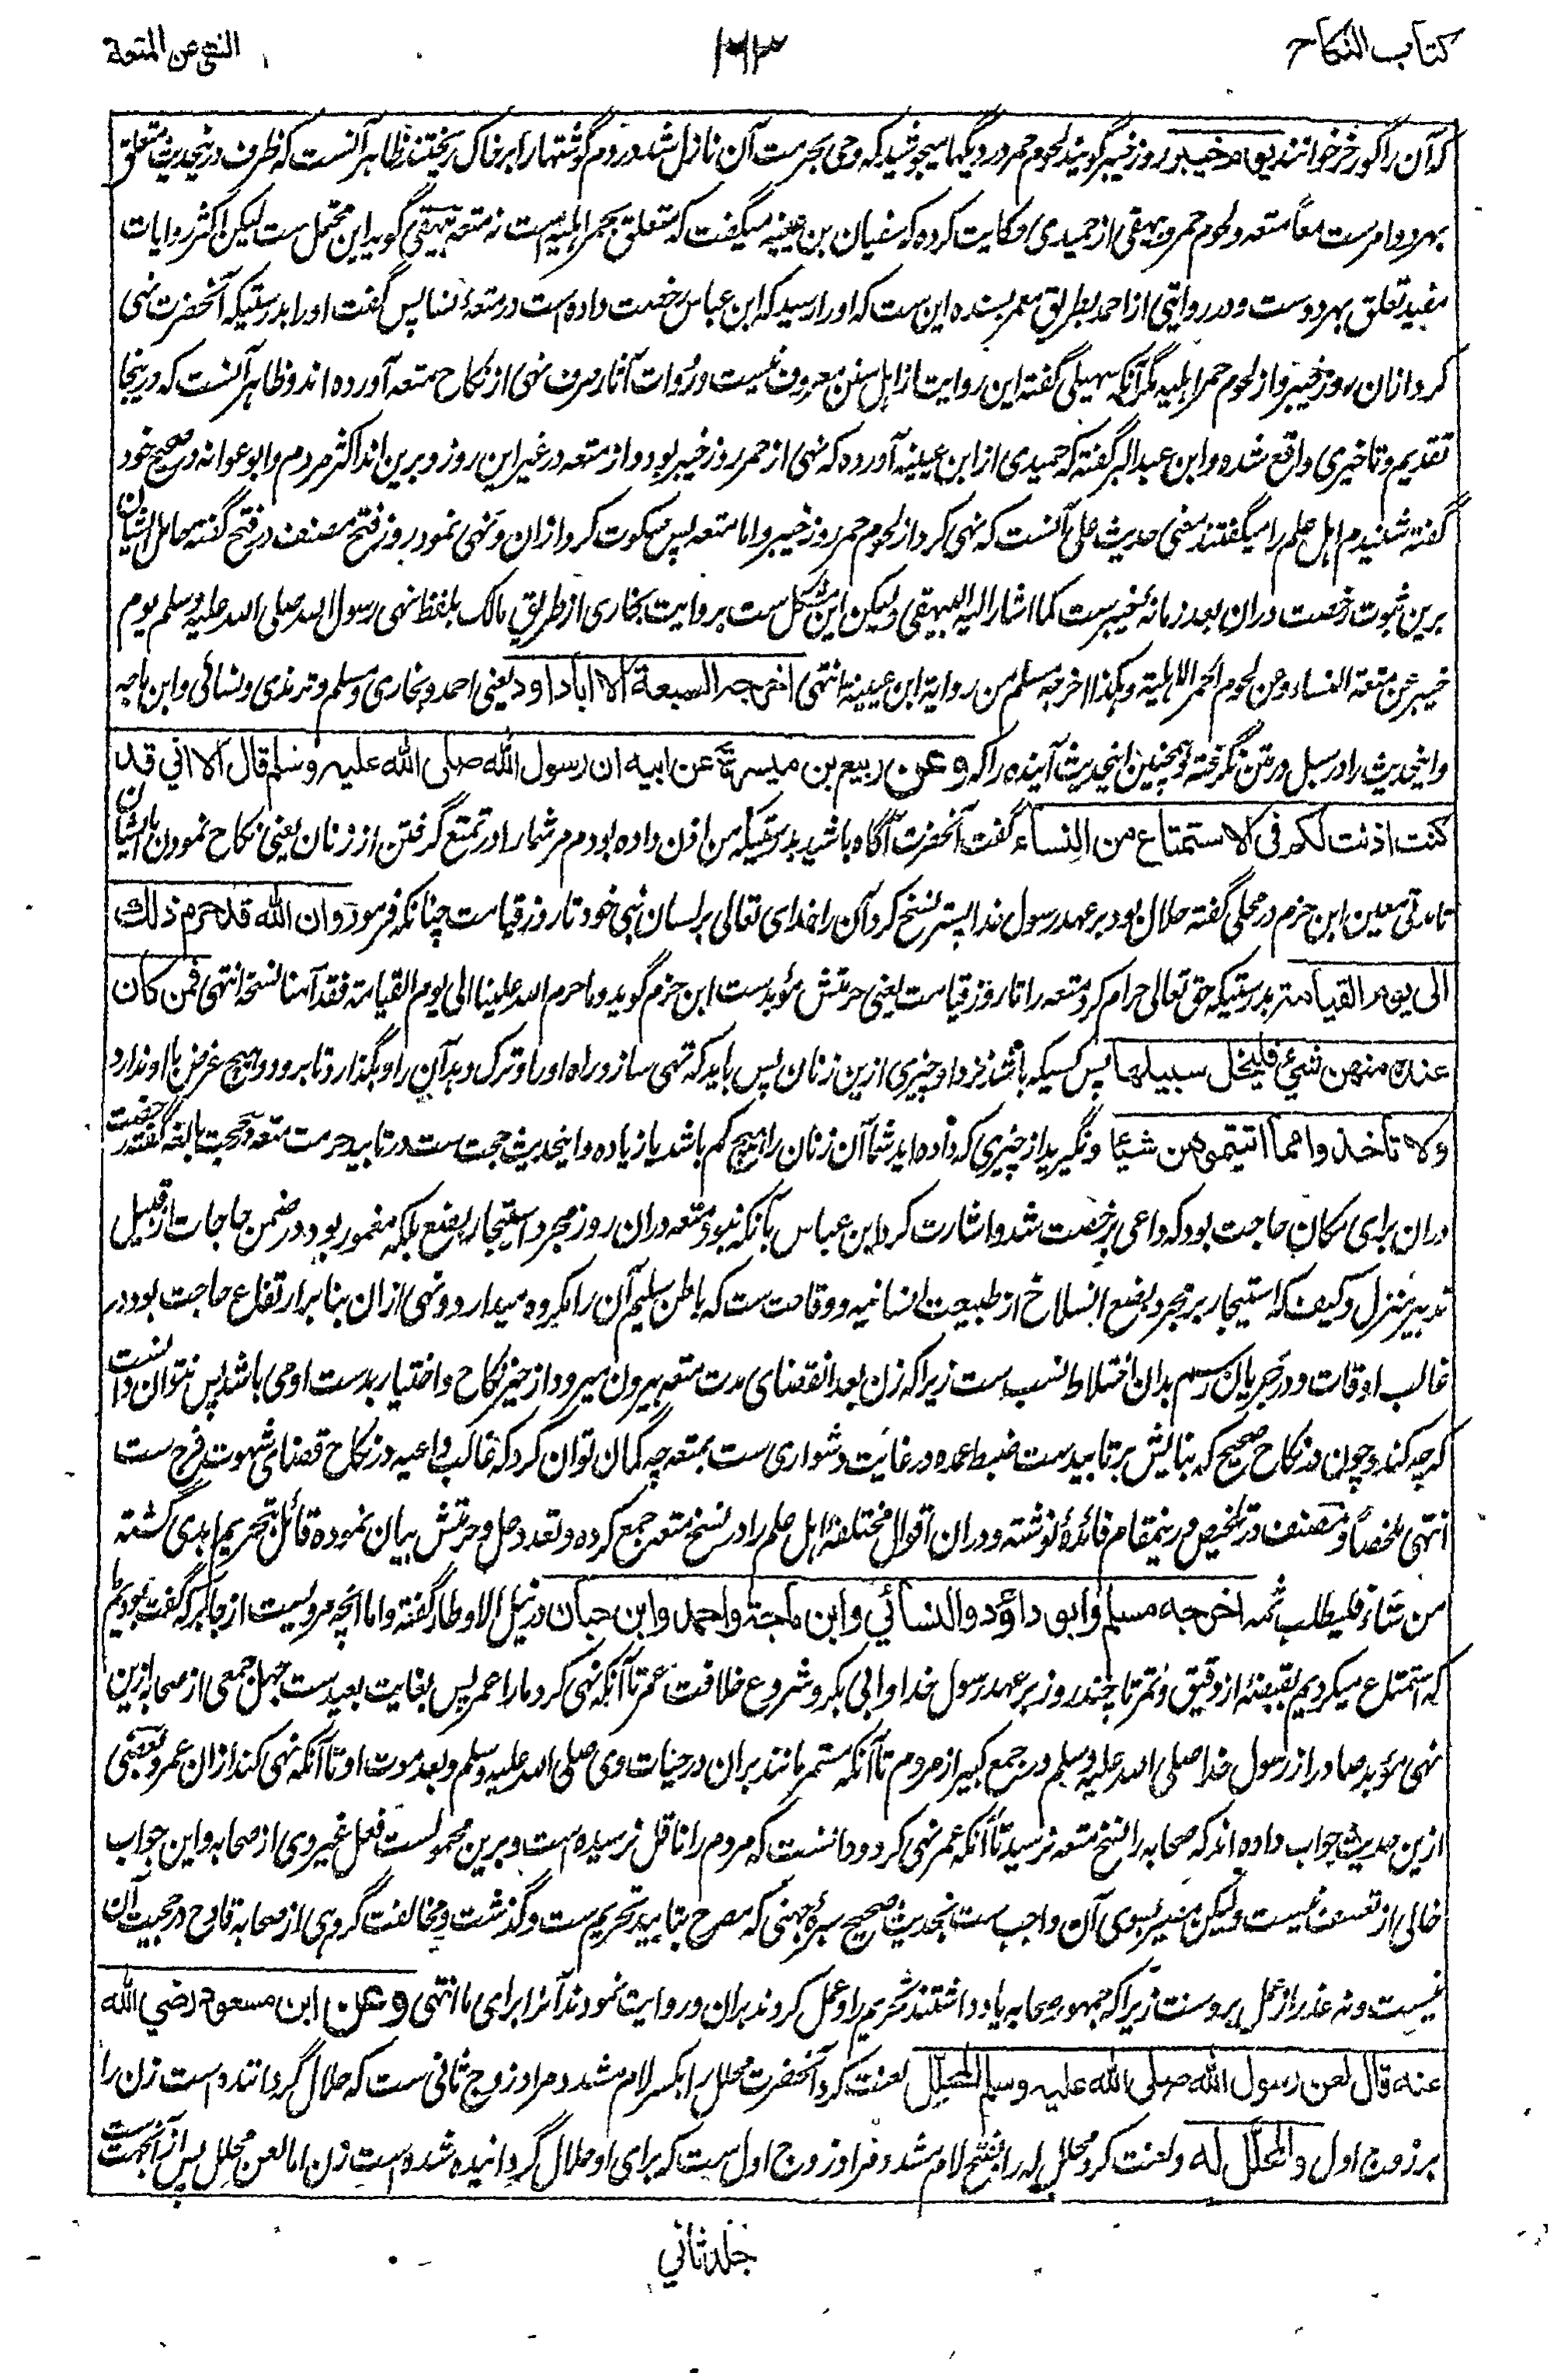 کتاب النکاح
۱۶۳
النهی عن المتعة
که آن را گورخر خوانند یوم خیبر روز خیبر گویند لحوم حمر در دیگها میجوشید که وحی بحرمت آن نازل شد مردم گوشتها را بر خاک ریختند ظاهر آنست که ظرف درینحدیث متعلق
بهر دو امرست معاً متعه و لحوم حمر و بیهقی از حمیدی حکایت کرده که سفیان بن عیینه میگفت که متعلق بحمر اهلیه است نه متعه بیهقی گوید این محتمل ست لیکن اکثر روایات
مفید تعلق بهر دوست و در روایتی از احمد بطریق معمر بسنده این ست که او را رسید که ابن عباس رخصت داده است در متعۀ نسا پس گفت او را بدرستیکه آنحضرت نهی
کرد ازان روز خیبر و از لحوم حمر اهلیه مگر آنکه سهیلی گفته این روایت از اهل سنن معروف نیست و رُوات آثار صرف نهی از نکاح متعه آورده اند و ظاهر آنست که درینجا
تقدیم و تاخیری واقع شده و ابن عبد البر گفته که حمیدی از ابن عیینه آورده که نهی از حمر روز خیبر بود و از متعه در غیر این روز و برین اند اکثر مردم و ابو عوانه در صحیح خود
گفته شنیدم اهل علم را میگفتند معنی حدیث علی آنست که نهی کرد از لحوم حمر روز خیبر و اما متعه پس سکوت کرد ازان و نهی نمود روز فتح مصنف در فتح گفته حامل ایشان
برین ثبوت رخصت دران بعد زمانۀ خیبرست کما اشار الیه البیهقی ولیکن این مشکل ست بروایت بخاری از طریق مالک بلفظ نهی رسول الله صلی الله علیه وسلم یوم
خیبر عن متعة النساء وعن لحوم الحمر الاهلیة وهکذا اخرجه مسلم من روایة ابن عیینة انتهی اخرجه السبعة الا ابا داود یعنی احمد و بخاری و مسلم و ترمذی و نسائی و ابن ماجه
و اینحدیث را در سبل در متن نگرفته و همچنین اینحدیث آینده را که وعن ربیع بن میسرة عن ابیه ان رسول الله صلی الله علیه وسلم قال الا انی قد
کنت اذنت لکم فی الاستمتاع من النساء گفت آنحضرت آگاه باشید بدرستیکه من اذن داده بودم مر شما را در تمتع گرفتن از زنان یعنی نکاح نمودن با ایشان
تا مدتی معین ابن حزم در محلی گفته حلال بود بر عهد رسول خدا پستر نسخ کرد آن را خدای تعالی بر لسان نبی خود تا روز قیامت چنانکه فرمود وان الله قد حرم ذلك
الی یوم القیامة بدرستیکه حق تعالی حرام کرد متعه را تا روز قیامت یعنی حرمتش مؤبدست ابن حزم گوید وما حرم الله علینا الی یوم القیامة فقد آمنا نسخه انتهی فمن کان
عنده منهن شیئ فلیخل سبیلها پس کسیکه باشد نزد او چیزی ازین زنان پس باید که تهی سازد راه او را و ترک دهد آن را و بگذارد تا برود و هیچ غرض با او ندارد
ولا تأخذوا مما آتیتموهن شیئا و نگیرید از چیزی که داده اید شما آن زنان را هیچ کم باشد یا زیاده و اینحدیث حجت ست در تابید حرمت متعه و در حجت بالغه گفته رخصت
دران برای مکان حاجت بود که داعی بر رخصت شد و اشارت کرد ابن عباس بآنکه نبود متعه دران روز مجرد استیجار بضع بلکه مغمور بود در ضمن حاجات از قبیل
تدبیر منزل و کیف که استیجار بر مجرد بضع انسلاخ از طبیعت انسانیه و وقاحت ست که باطن سلیم آن را مکروه میدارد و نهی ازان بنا بر ارتفاع حاجت بود در
غالب اوقات و در جریان رسم بدان اختلاط نسب ست زیرا که زن بعد انقضای مدت متعه بیرون میرود از حیز نکاح و اختیار بدست او می باشد پس نتوان دانست
که چه کند و چون در نکاح صحیح که بنایش بر تابیدست ضبط عده در غایت دشواری ست بمتعه چه گمان توان کرد که غالب داعیه در نکاح قضای شهوت فرج ست
انتهی ملخصاً و مصنف در تلخیص درینمقام فائدۀ نوشته و دران اقوال مختلفۀ اهل علم را در نسخ متعه جمع کرده و تعدد حل و حرمتش بیان نموده قائل بتحریم ابدی گشته
من شاء فلیطلب ثمه اخرجه مسلم وابو داؤد والنسائی وابن ماجة واحمد وابن حبان در نیل الاوطار گفته و اما انچه مرویست از جابر که گفت بودیم ما
که استمتاع میکردیم بقبضۀ از دقیق و تمر تا چند روز بر عهد رسول خدا و ابی بکر و شروع خلافت عمر تا آنکه نهی کرد ما را عمر پس بغایت بعیدست جهل جمعی از صحابه ازین
نهی مؤبد صادر از رسول خدا صلی الله علیه وسلم در جمع کبیر از مردم تا آنکه مستمر مانند بران در حیات وی صلی الله علیه وسلم و بعد موت او تا آنکه نهی کند ازان عمر و بعضی
ازین حدیث جواب داده اند که صحابه را نسخ متعه نرسید تا آنکه عمر نهی کرد و دانست که مردم را ناقل نرسیده است و برین محمولست فعل غیر وی از صحابه و این جواب
خالی از تعسف نیست ولیکن مصیر بسوی آن واجب ست بحدیث صحیح سبرۀ جهنی که مصرح بتابید تحریم ست و گذشت و مخالفت گروهی از صحابه قادح در حجیت آن
نیست و نه عذر از عمل بروست زیرا که جمهور صحابه یاد داشتند تحریم را و عمل کردند بران و روایت نمودند آنرا برای ما انتهی وعن ابن مسعود رضی الله
عنه قال لعن رسول الله صلی الله علیه وسلم المحلِّل لعنت کرد آنحضرت محلل را بکسر لام مشدد مراد زوج ثانی ست که حلال گرداننده است زن را
بر زوج اول والمحلَّل له و لعنت کرد محلل له را بفتح لام مشدد مراد زوج اول ست که برای او حلال گردانیده شده است زن اما لعن محلل پس از آنجهت ست
جلد ثانی